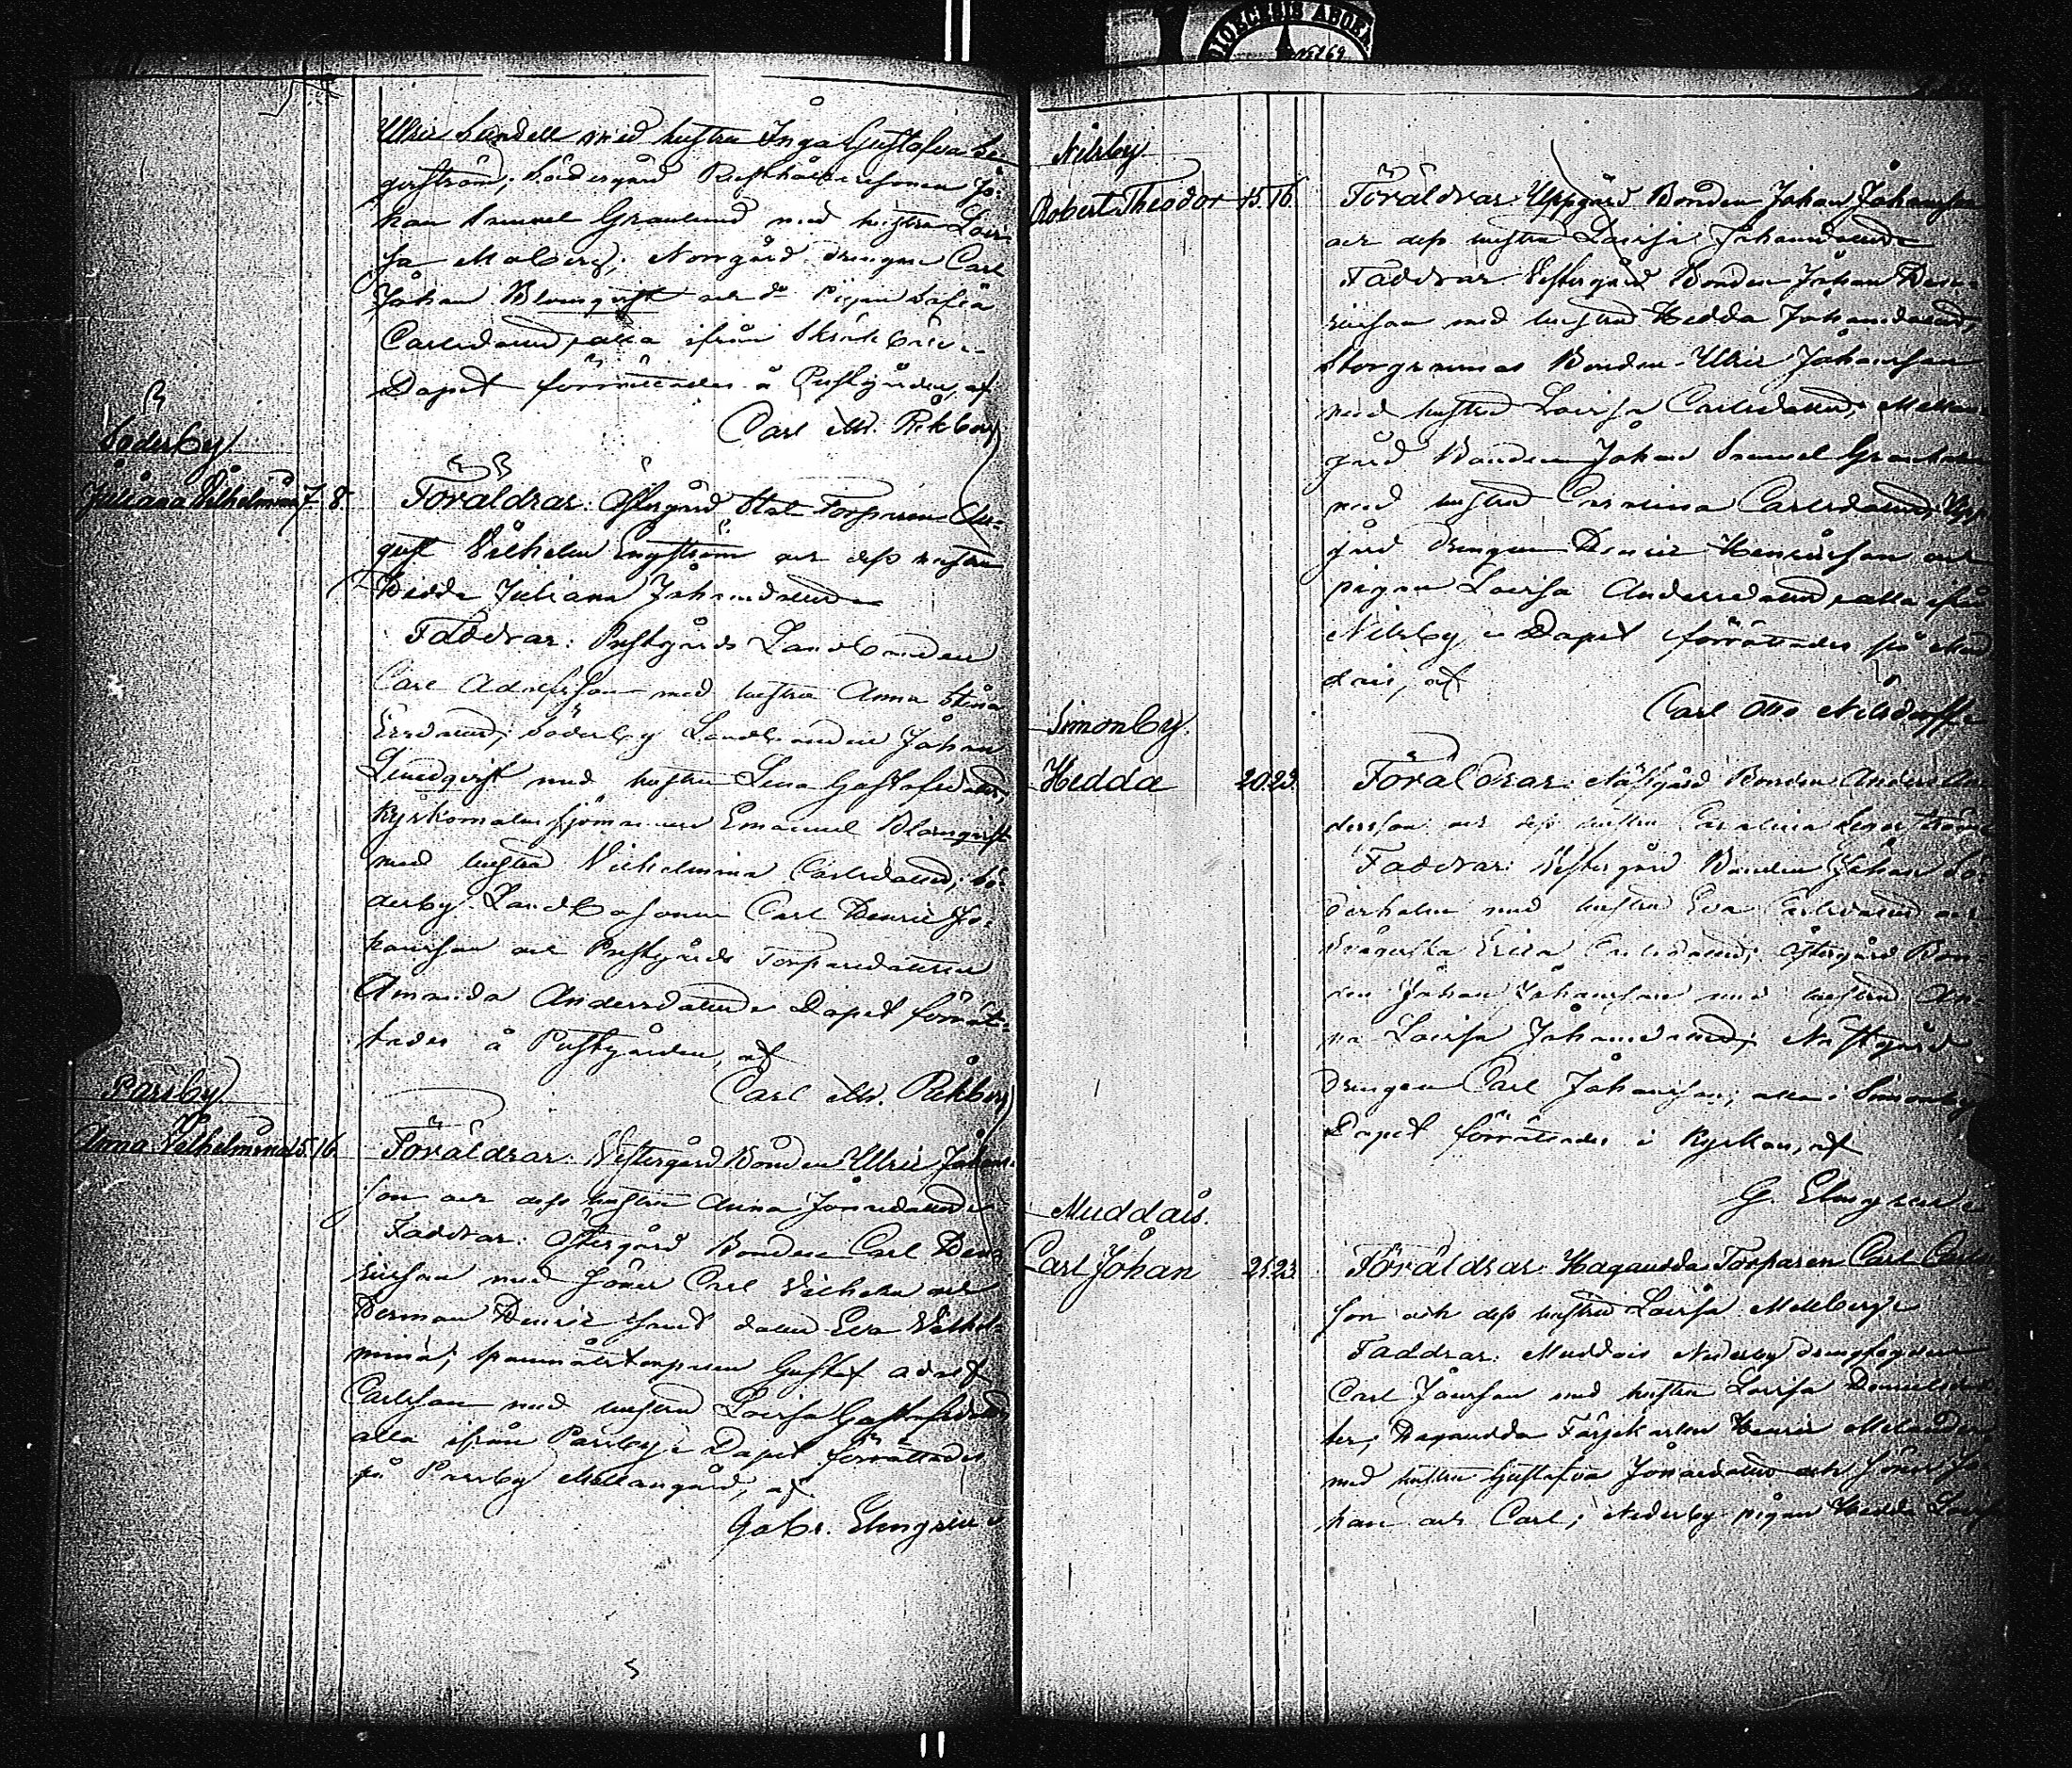 DIOECESIS ABOEN
Ulric Lundell med hustru Inga Gustafva Se-
gerström; Södergård Rusthållaresonen Jo-
han Samuel Granlund med hustru Lovi-
sa Malberg; Norrgård drengen Carl
Johan Blomqvist och d:o Pigan Sofia
Carlsdotter, alla ifrån
Dopet förrättades å Prestgården, af
Carl M. Rikberg
Söderby
Juliana Vilhelmina 7. 8.
Föräldrar: Östergård Stat Torparen Au-
gust Vilhelm Engström och dess hustru
Hedda Juliana Johansdotter
Faddrar: Prestgårds Landbonden
Carl Adolfsson med hustru Anna Stina
Ersdotter; Söderby Landbonden Johan
Lindqvist med hustru Lena Gustafsdotter,
Kyrkomalm sjömannen Emanuel Blomqvist
med hustru Vilhelmina Carlsdotter; Sö-
derby Landbosonen Carl Henric Jo-
hansson och Prestgårds Torparedottren
Amanda Andersdotter Dopet förrät-
tades å Prestgården, af
Carl M. Rikberg
Parsby
Anna Vilhelmina 15. 16.
Föräldrar: Vestergård Bonden Ulric Johans-
son och dess hustru Anna Jönsdotter
Faddrar: Östergård Bonden Carl Hen-
ricsson med söner Carl Vilhelm och
Herman Henric samt dotter Eva Vilhel-
mina; torparen Gustaf Adolf
Carlsson med hustru Lovisa Gustafsdotter
alla ifrån Parsby Dopet förrättades
på Parsby Mellangård, af
Gabr. Elmgren
Nilsby
Robert Theodor 15. 16.
Föräldrar: Uppgård Bonden Johan Johansson
och dess hustru Lovisa Johansdotter
Faddrar: Vestergård Bonden Johan Hen-
ricsson med hustru Hedda Johansdotter,
Storgrannas Bonden Ulric Johansson
med hustru Lovisa Carlsdotter; Mellan-
gård Bonden Johan Samuel
med hustru Carolina Carlsdotter; Upp-
gård drengen Henric Henricsson och
pigan Lovisa Andersdotter, alla ifrån
Nilsby Dopet förrättades på Mud-
dais, af
Carl Otto Nilsdorff
Simonby.
Hedda 20. 23.
Föräldrar: Nästgård Bonden Anders An-
dersson och dess hustru Carolina
Faddrar: Vestergård Bonden Johan Sö-
derholm med hustru Eva Carlsdotter och
Svägerska Erica Carlsdotter; Östergård Bon-
den Johan Johansson med hustru An-
na Lovisa Johansdotter; Nästgård
drengen Carl Johansson; alla i Simonby
Dopet förrättades i Kyrkan, af
G. Elmgren
Muddais.
Carl Johan 21. 23.
Föräldrar: Haganudda Torparen Carl Carls-
son och dess hustru Lovisa Mellberg
Faddrar: Muddais Nederby drengfogden
Carl Jönsson med hustru Lovisa Danielsdot-
ter; Haganudda Färjekarlen Henric Melander
med hustru Gustafva Jönsdotter och söner Jo-
han och Carl; Nederby pigan Hedda